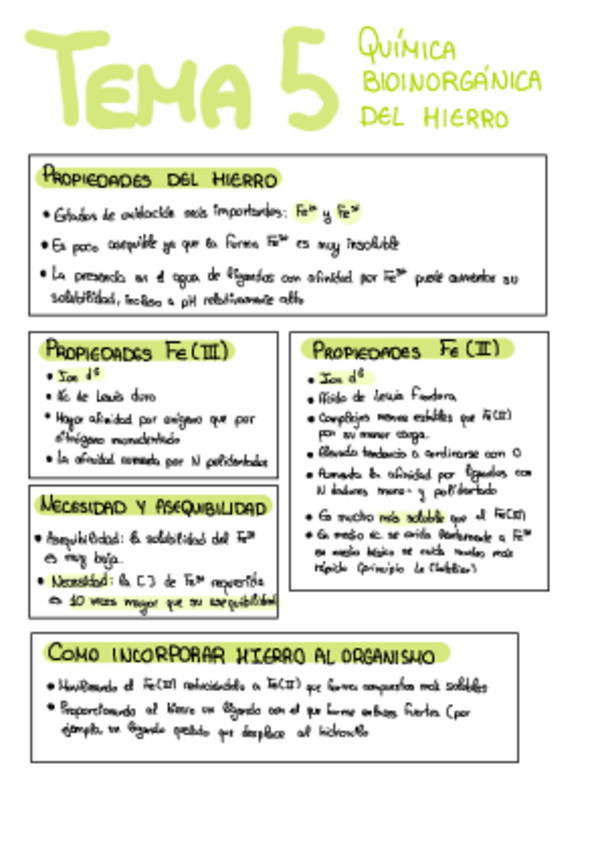 TEMA 5
QUÍMICA
BIOINORGÁNICA
DEL HIERRO
PROPIEDADES DEL HIERRO
• Estados de oxidación más importantes: Fe²⁺ y Fe³⁺
• Es poco asequible ya que la forma Fe³⁺ es muy insoluble
• La presencia en el agua de ligandos con afinidad por Fe³⁺ puede aumentar su
solubilidad, incluso a pH relativamente alto
PROPIEDADES Fe (III)
• Ion d⁵
• Ác de Lewis duro
• Mayor afinidad por oxígeno que por
nitrógeno monodentado
• La afinidad aumenta por N polidentados
PROPIEDADES Fe (II)
• Ion d⁶
• Ácido de Lewis Frontera
• Complejos menos estables que
por su menor carga.
• Elevada tendencia a cordinarse con O
• Aumenta la afinidad por ligandos con
N dadores mono- y polidentado
• Es mucho más soluble que el Fe(III)
• En medio ác. se oxida lentamente a Fe³⁺
en medio básico se oxida mucho más
rápido (principio de
NECESIDAD Y ASEQUIBILIDAD
• Asequibilidad: la solubilidad del Fe³⁺
es muy baja.
• Necesidad: la [ ] de Fe³⁺ requerida
es 10 veces mayor que su asequibilidad
COMO INCORPORAR HIERRO AL ORGANISMO
• Movilizando el Fe(III) reduciéndolo a Fe(II) que forma compuestos más solubles
• Proporcionando al hierro un ligando con el que forme enlaces fuertes (por
ejemplo un ligando quelato que desplace al hidroxilo